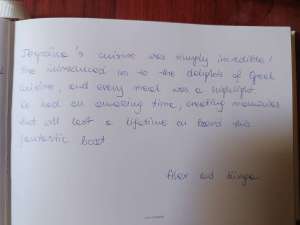 's cuisine was simply incredible!
She introduced us to the delights of Greek
cuisine, and every meal was a highlight.
We had an amazing time, creating memories
that will last a lifetime on board this
fantastic boat
Alex and